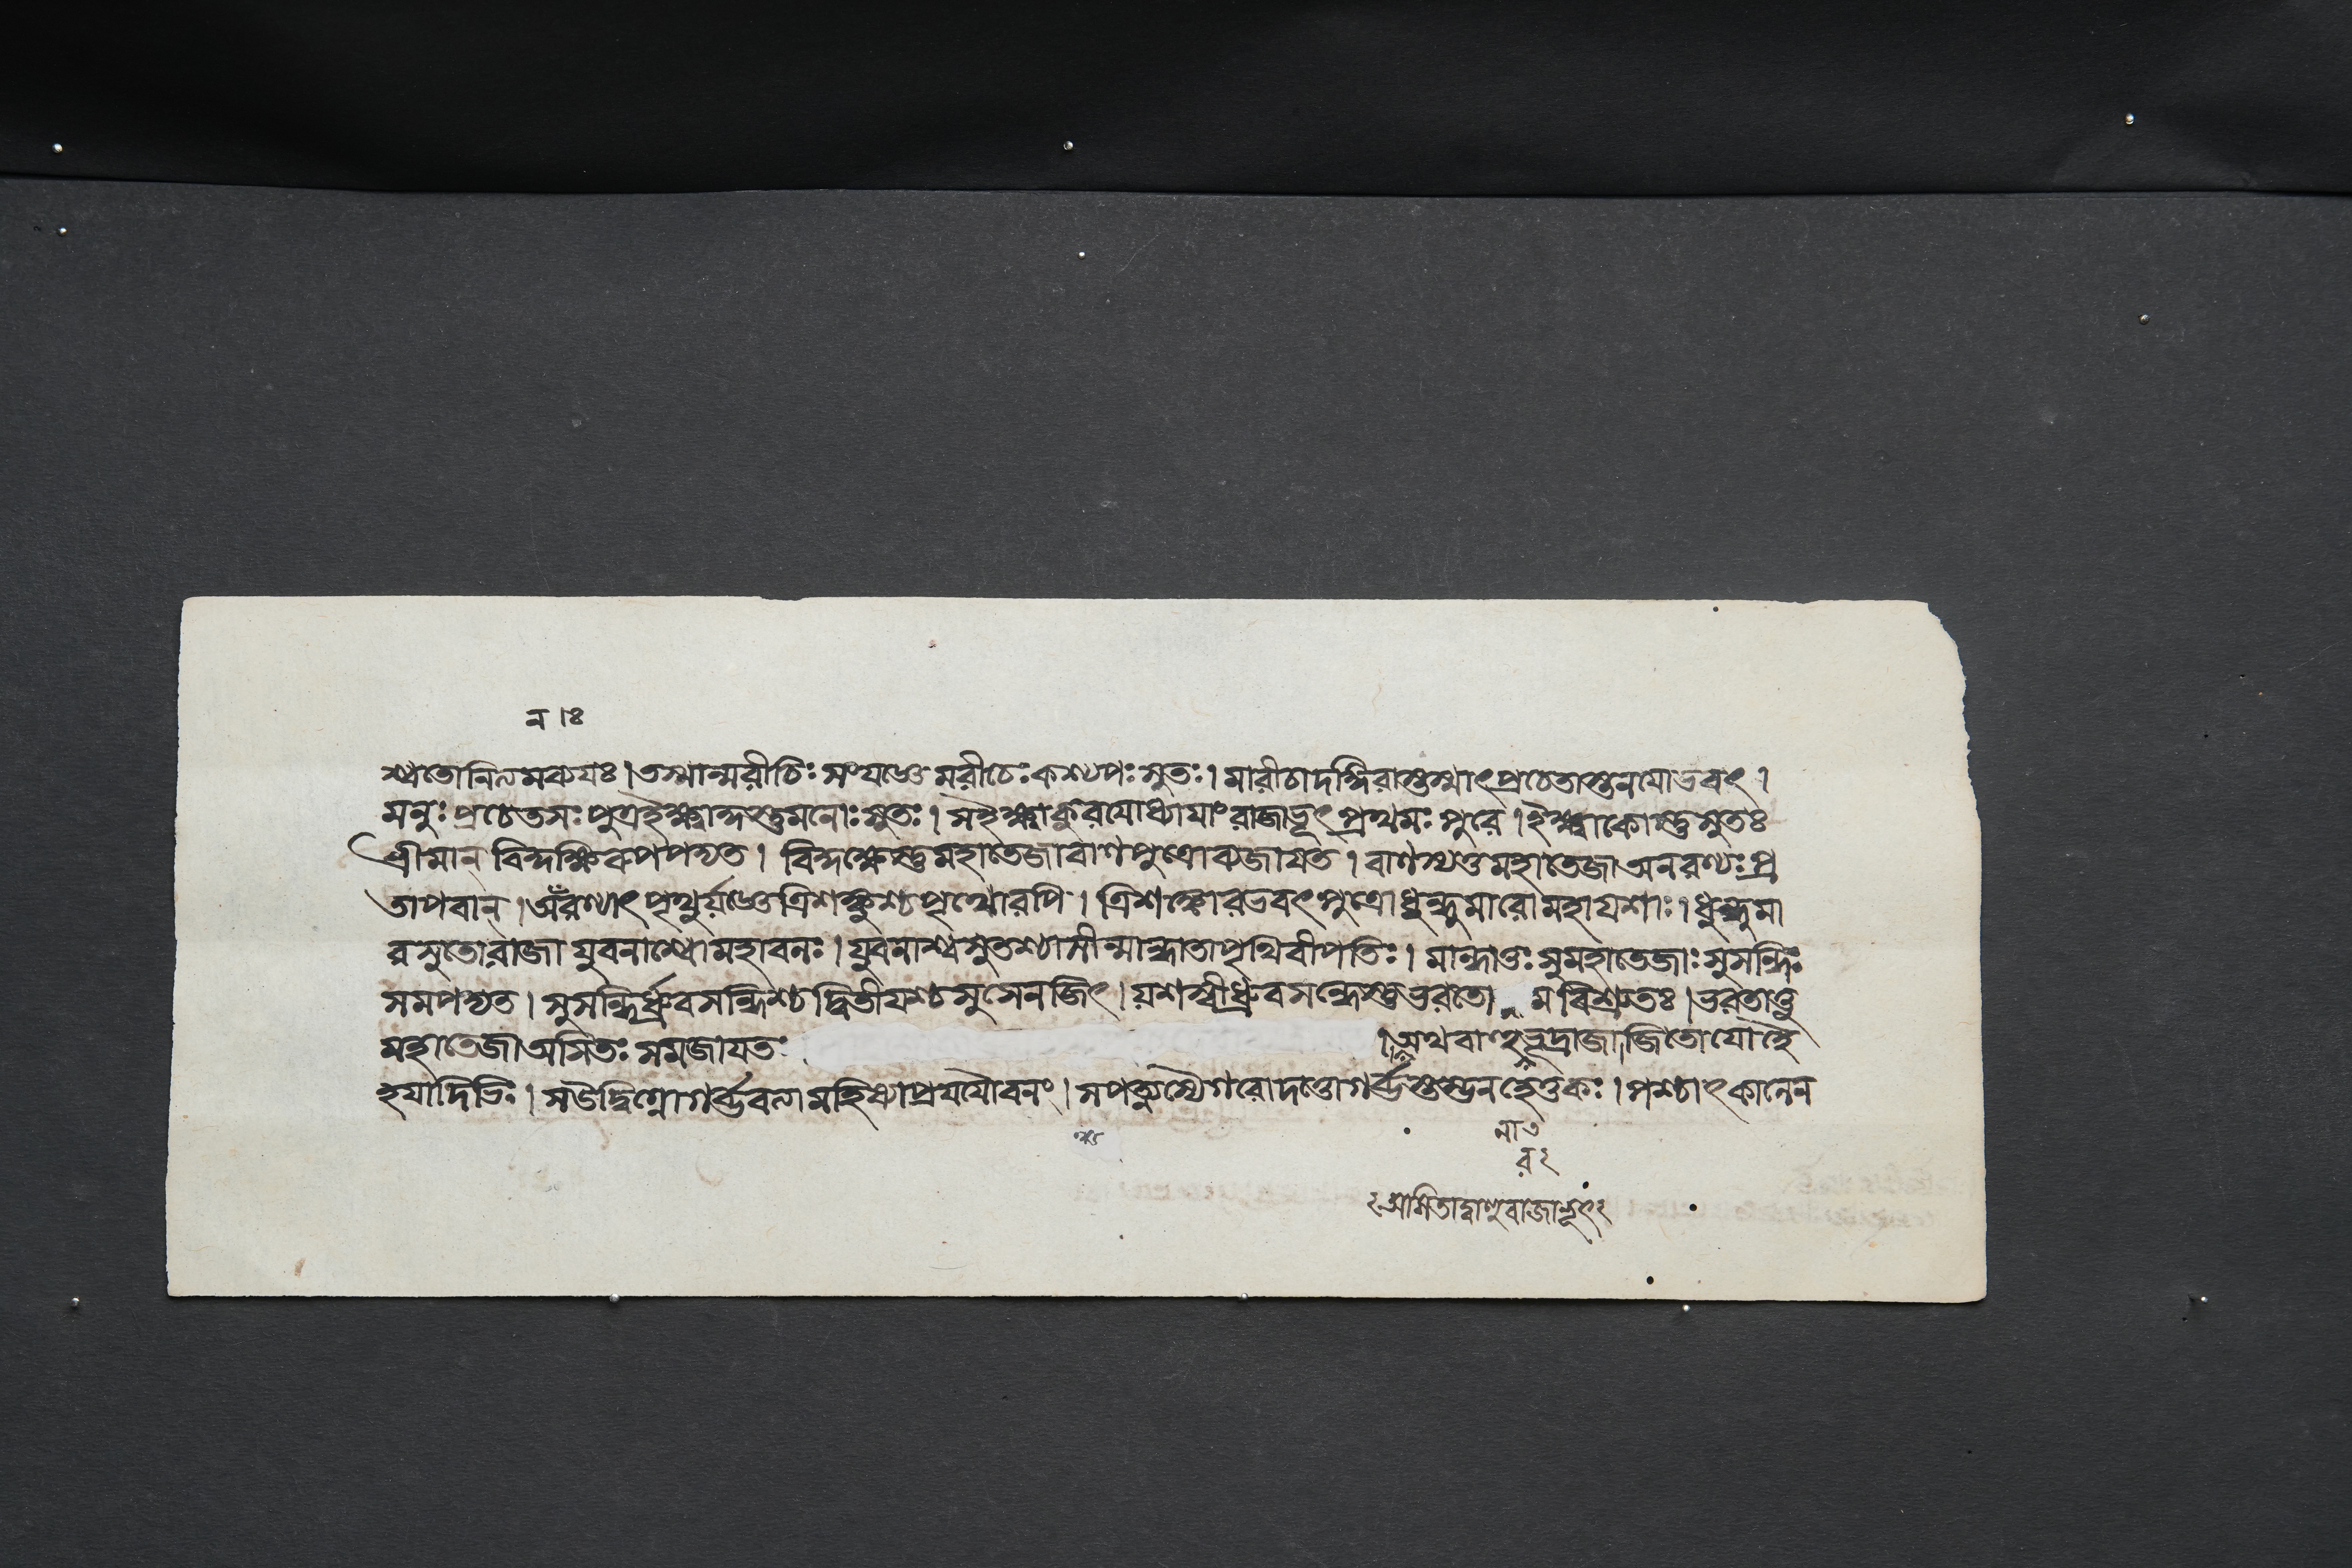 ন ৷ঃ
শ্বতোনিত্যমব্যযঃ। তস্মান্মরীচিঃ সংযজ্ঞে মরীচেঃ কশ্যপঃ সুতঃ। মারীচাদঙ্গিরাস্তুস্মাৎপ্রচেতাস্তনযোভবৎ।
মনুঃ প্রচেতসঃ পুত্রইক্ষ্বাকুস্তুমনোঃ সুতঃ। সইক্ষ্বাকুরযোধ্যাযাং রাজাভূৎ প্রথমঃ পুরে। ইক্ষ্বাকোস্তুসুতঃ
শ্রীমান্ বিকুক্ষিরুপপদ্যত। বিকুক্ষেস্তুমহাতেজাবাণপুত্রোব্যজাযত। বাণস্যতুমহাতেজাঅনরণ্যঃ প্র
তাপবান্। অঁরণ্যাৎ পৃথুর্যজ্ঞেত্রিশঙ্কুশ্চপৃথোরপি। ত্রিশঙ্কোরভবৎ পুত্রোধুন্ধুমারোমহাযশাঃ। ধুন্ধুমা
রসুতোরাজা যুবনাশ্বোমহাবলঃ। যুবনাশ্বসুতশ্চাসীন্মান্ধাতাপৃথিবীপতিঃ। মান্ধাতুঃ সুমহাতেজাঃ সুসন্ধিঃ
সমপদ্যত। সুসন্ধির্ধ্রুবসন্ধিশ্চ দ্বিতীযশ্চ সুসেনজিৎ। যশস্বীধ্রুবসন্ধেস্তুভরতো ম বিশ্রুতঃ। ভরতাত্তু
মহাতেজাঅসিতঃ সমজাযতঃ ।অথবাহুরভূদ্রাজা জিতোযোহৈ
হযাদিভিঃ। দ্বিগ্নোগর্ব্ভবত্যা মহিষ্যাপ্রযযৌবনং। সপত্ন্যাস্যৈগরোদত্তোগর্ব্ভস্তস্তনহেতুকঃ। পশ্চাৎকালেন
নাভ
র২
২অসিতাদ্বাহুরাজাভূৎ২